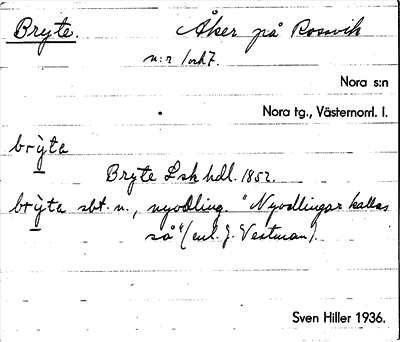 Bryte. Åker på Rossvik
n:r 1 och 7.
Nora s:n
Nora tg., Västernorrl. l.
brỳta
Bryte L sk hdl. 1852.
brỳta sbt. n., nyodling. "Nyodlingar kallas
så" (enl. J. Vestman).
Sven Hiller 1936.